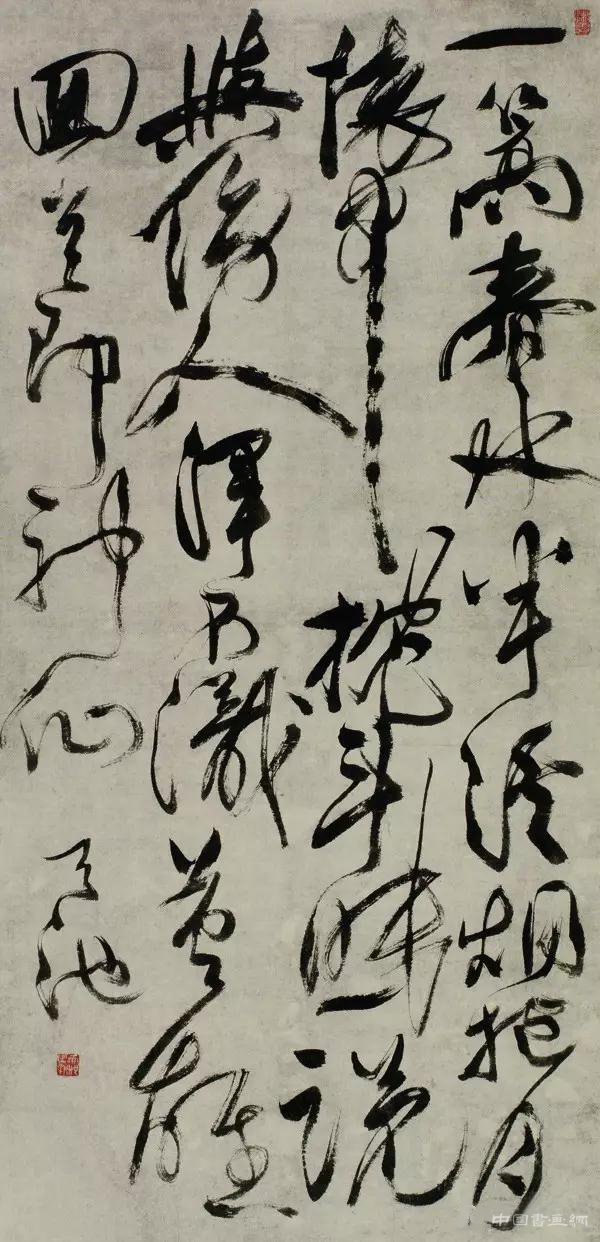 一篙春水半溪烟抱月
懷中枕斗眠說
與傍人渾不識英雄
回首即神仙
天池
中国書画網